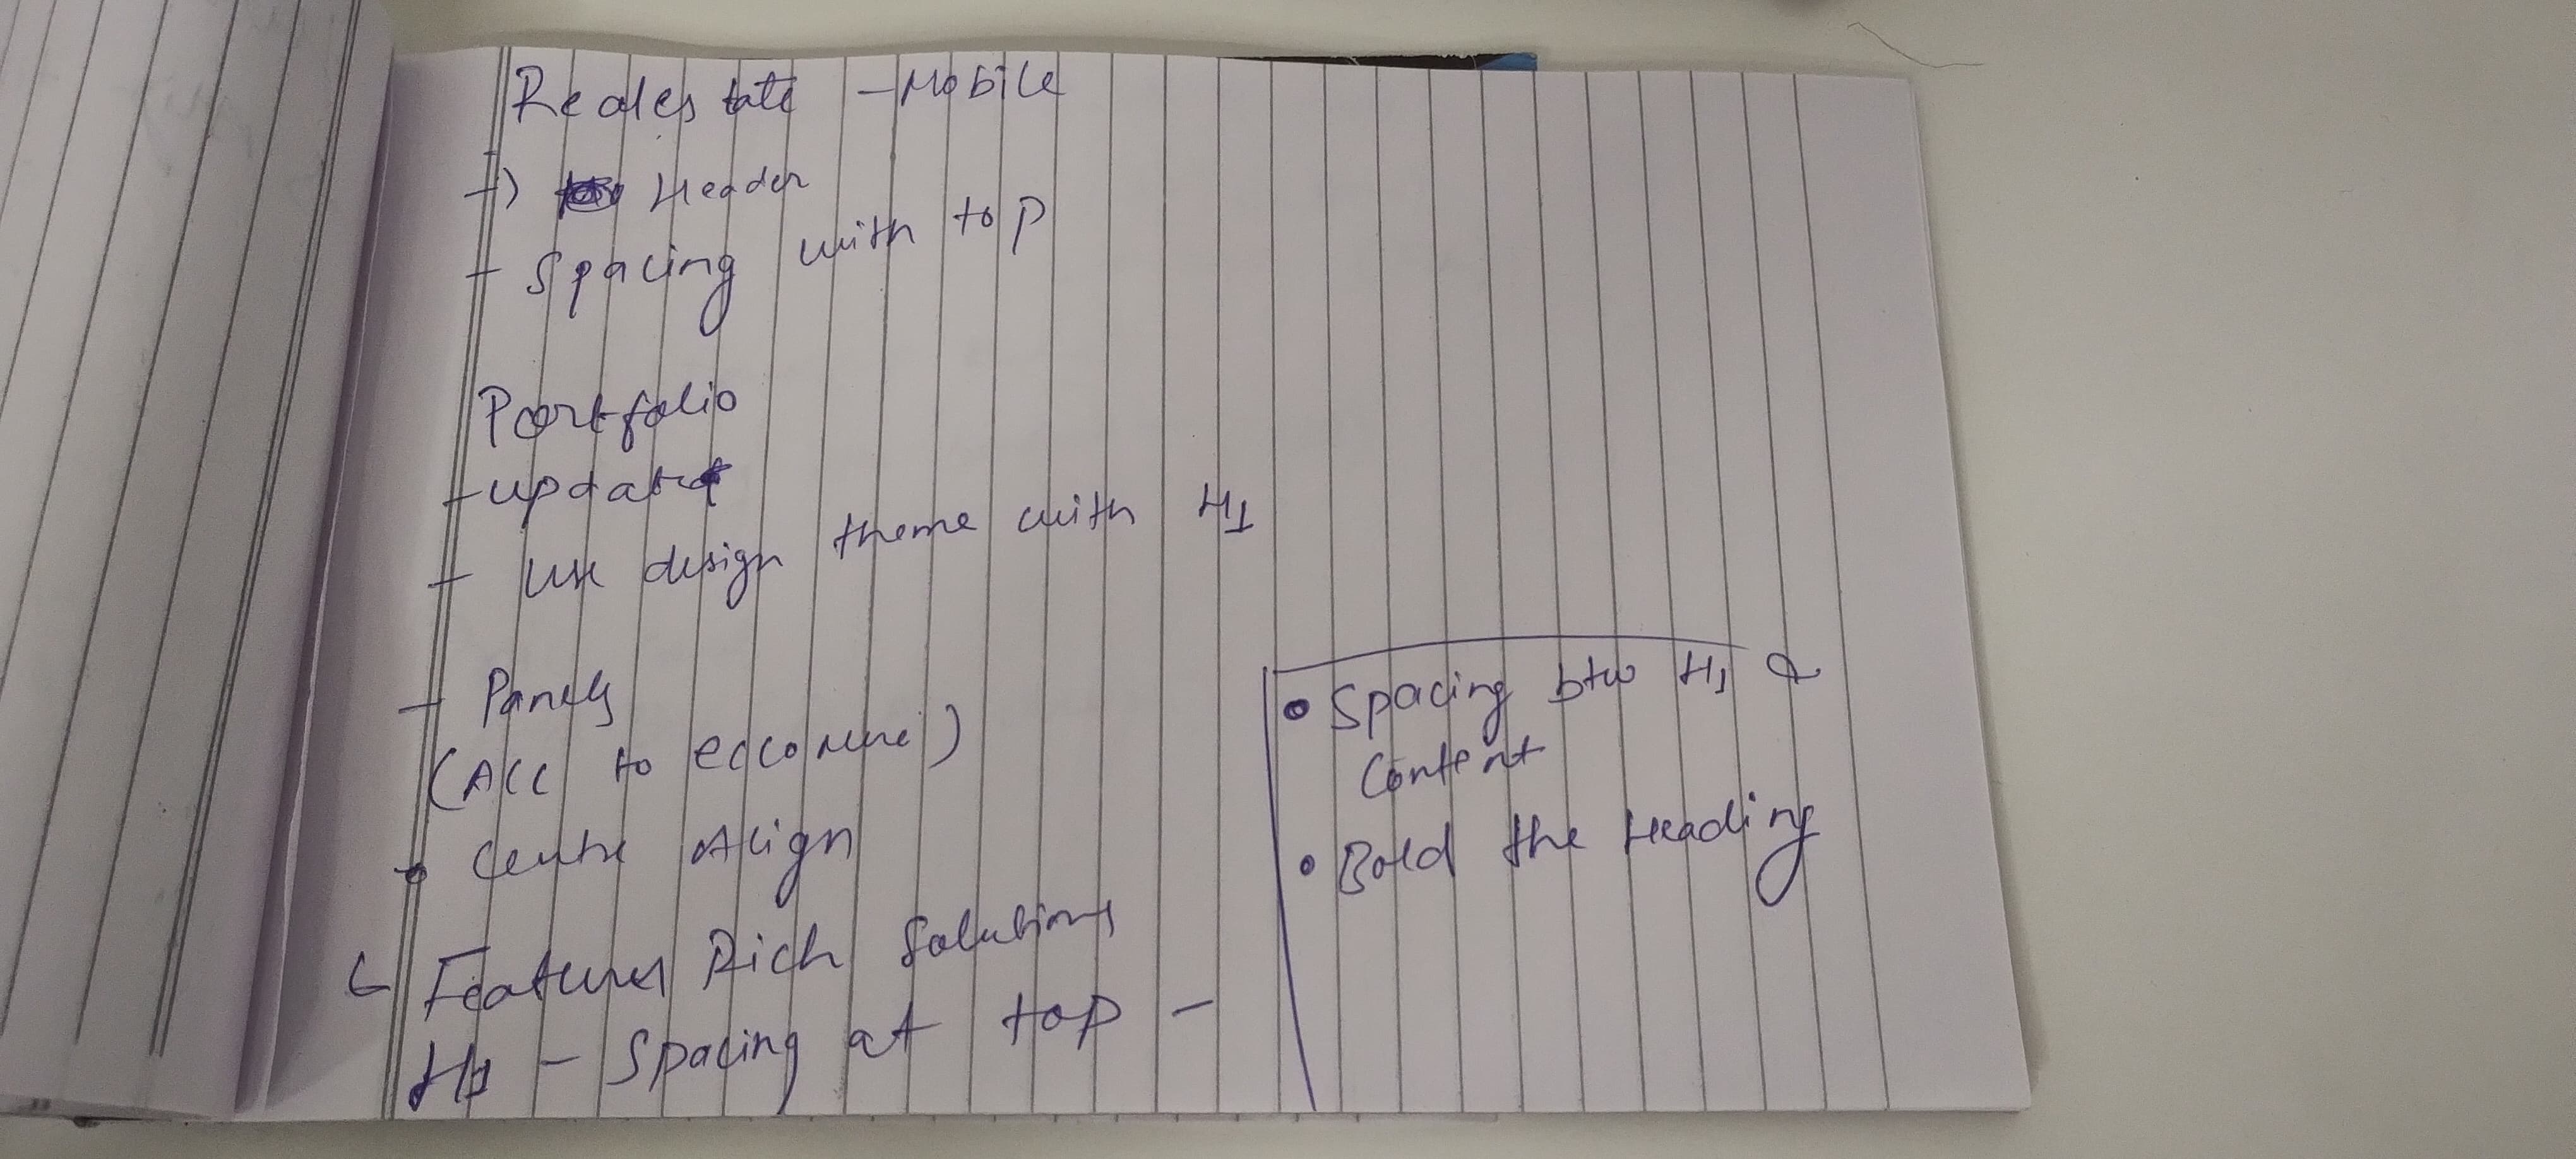 Realestate - Mobile
-) Header
- Spacing with top
Portfolio
- update
- Use design theme with H1
- Panels
(Acc to )
• Centre Align
Features Rich Solutions
H1 - Spacing at top -
• Spacing btw H1 &
Content
• Bold the Heading